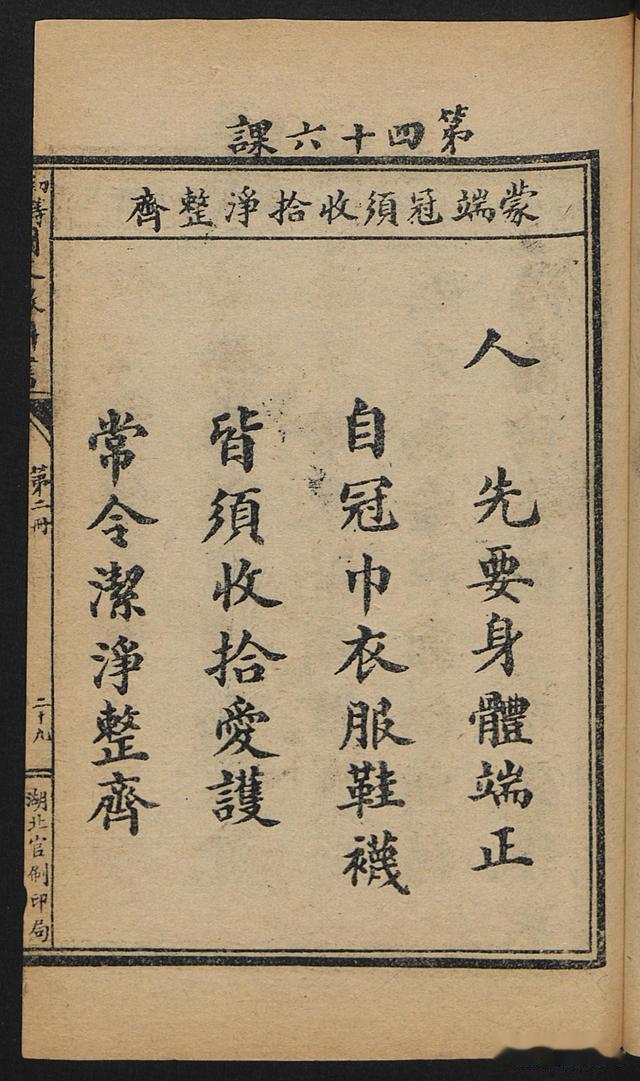 第四十六課
蒙端冠須收拾淨整齊
人 先要身體端正
自冠巾衣服鞋襪
皆須收拾愛護
常令潔淨整齊
第二冊
二十九
湖北官刷印局